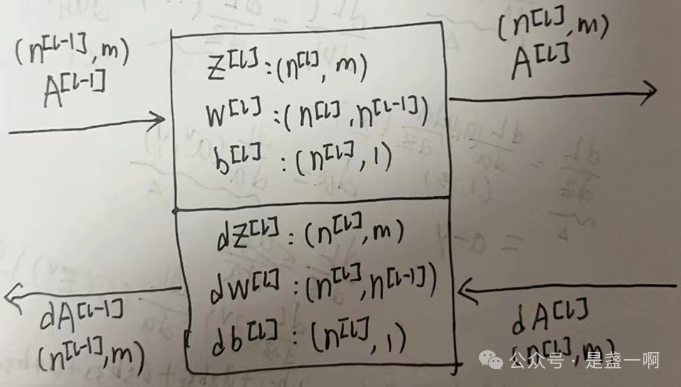 (n^[l-1], m)
A^[l-1]
z^[l] : (n^[l], m)
w^[l] : (n^[l], n^[l-1])
b^[l] : (n^[l], 1)
(n^[l], m)
A^[l]
dz^[l] : (n^[l], m)
dw^[l] : (n^[l], n^[l-1])
db^[l] : (n^[l], 1)
dA^[l-1]
(n^[l-1], m)
dA^[l]
(n^[l], m)
公众号 · 是盏一啊